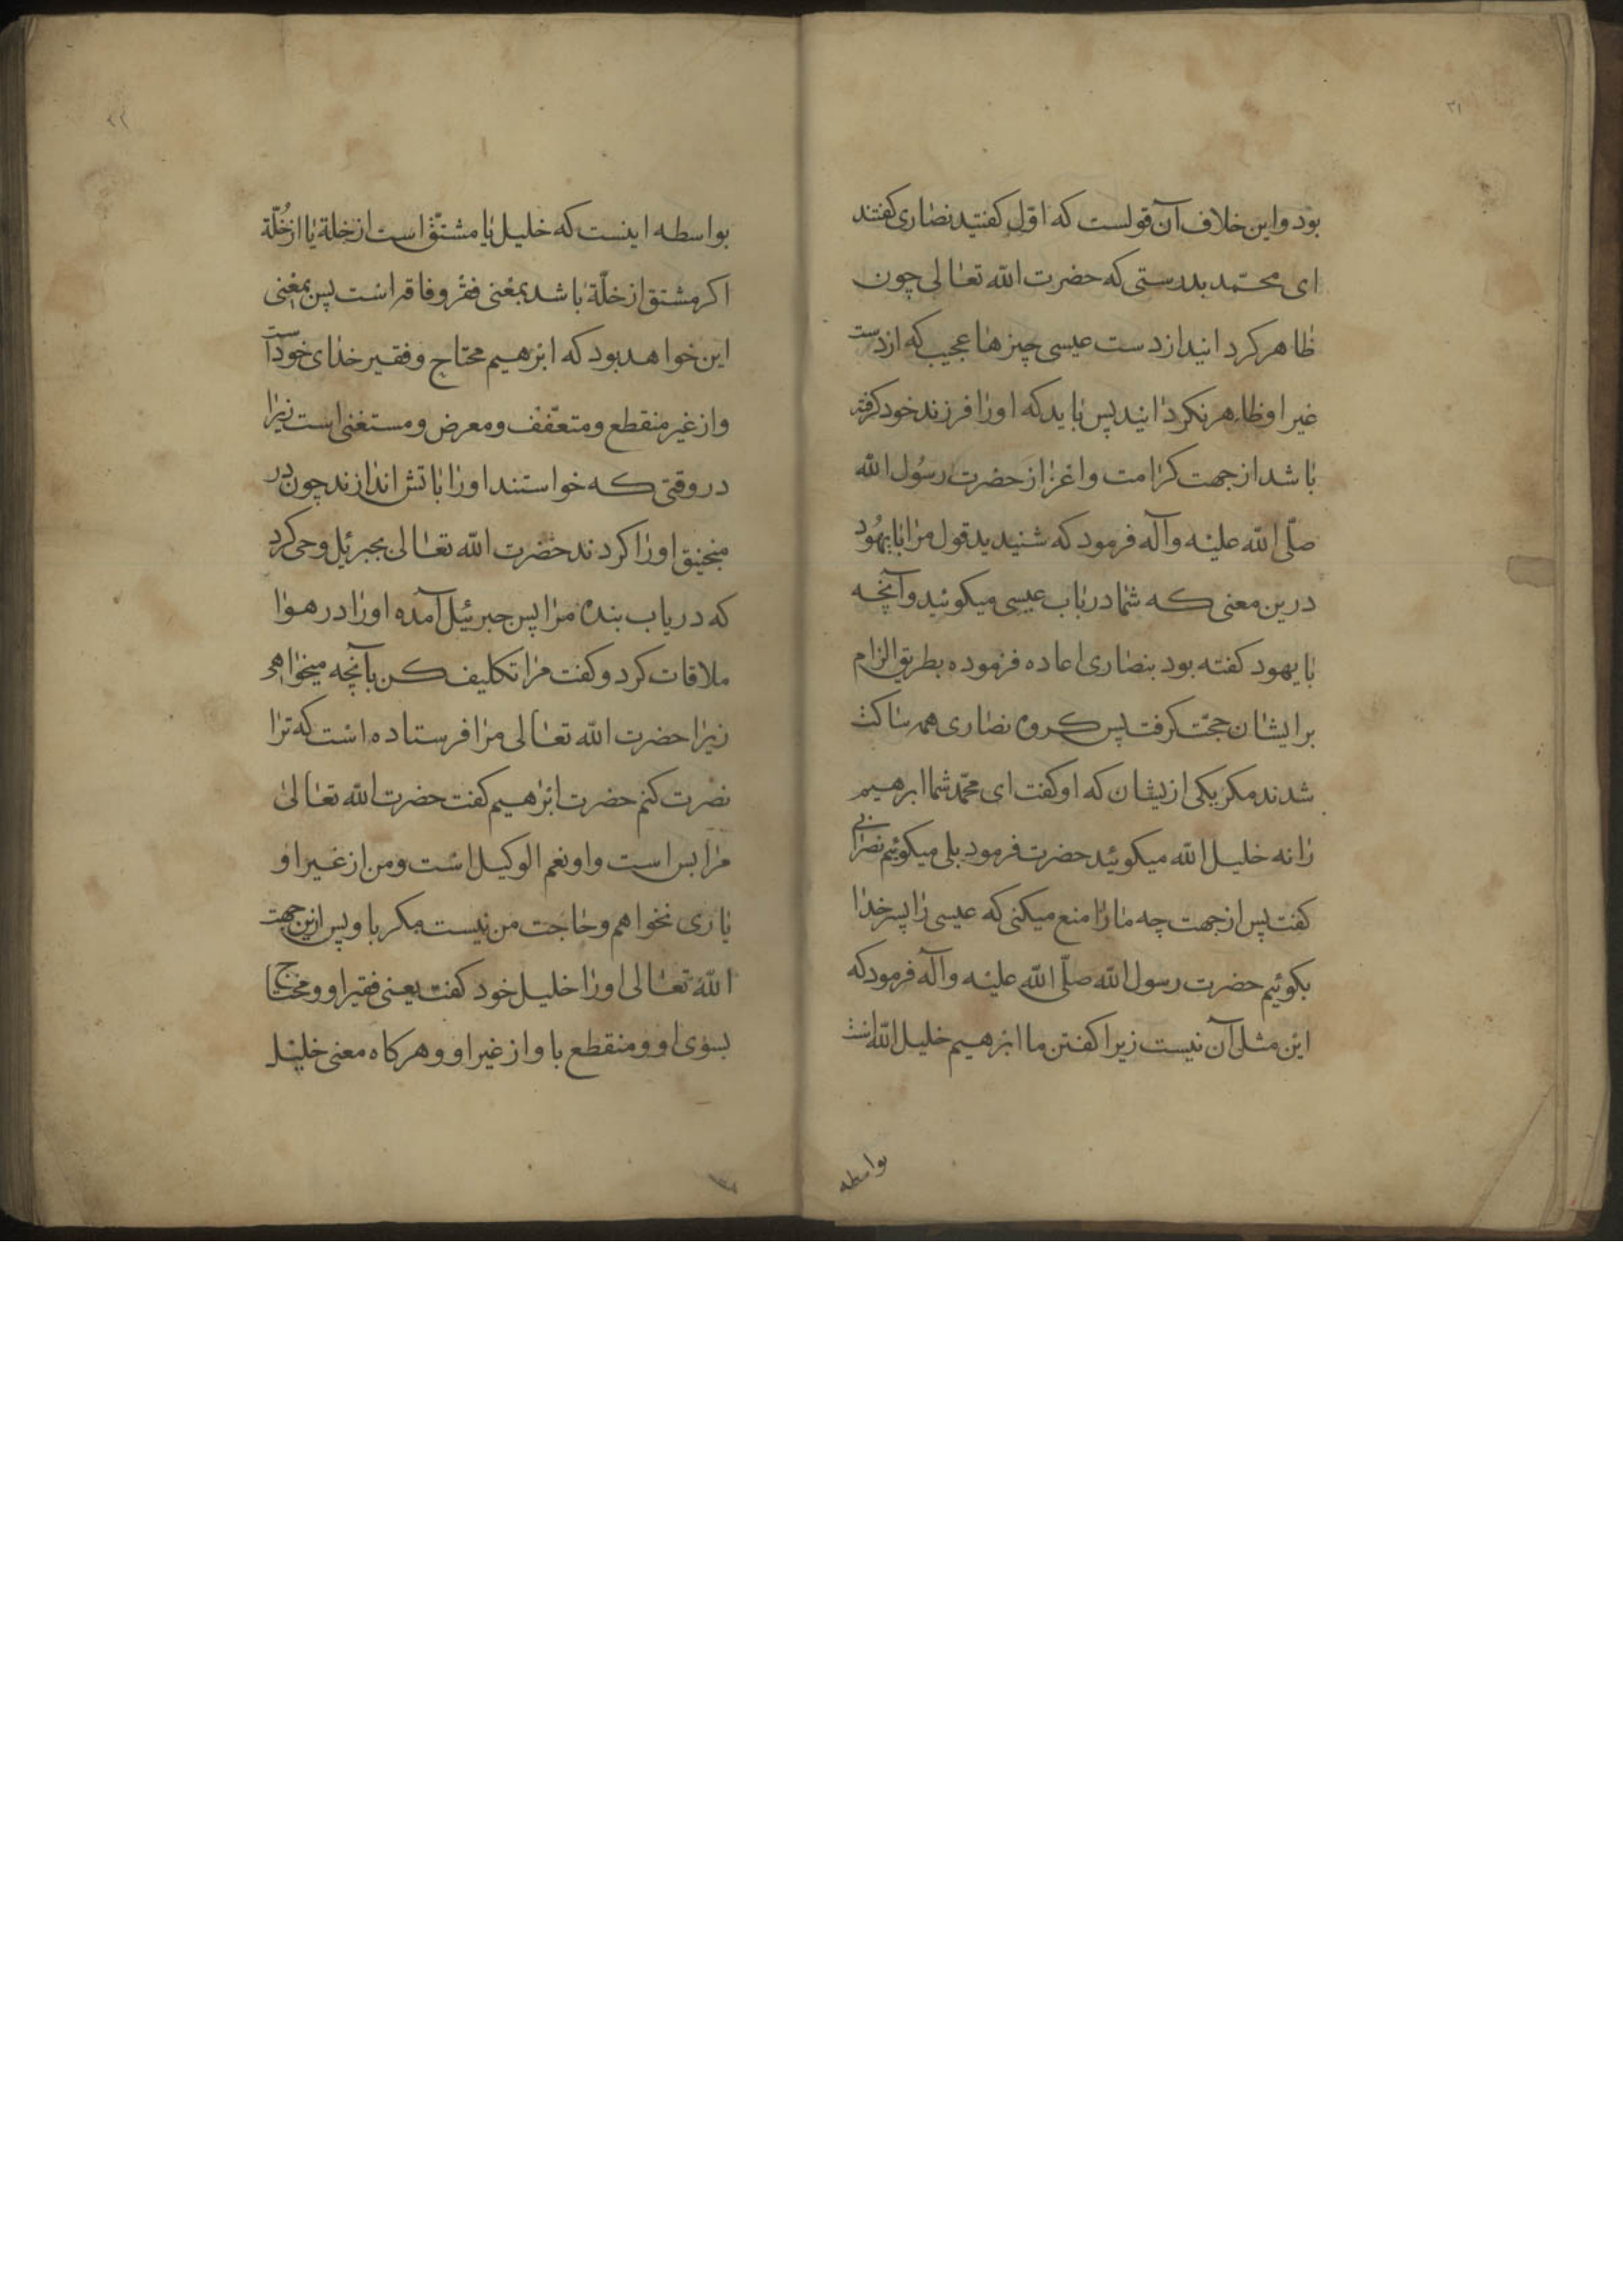 ۲۱
بود و این خلاف آن قولست که اوّل کفتید نصاری کفتند
ای محمّد بدرستی که حضرت الله تعالی چون
ظاهر کردانید از دست عیسی چیزها عجیب که از دست
غیر او ظاهر نکردانید پس باید که اورا فرزند خود کرفته
باشد از جهت کرامت و اعزاز حضرت رسُول الله
صلّی الله علیه وآله فرمود که شنیدید قول مرا بایهُود
درین معنی که شما درباب عیسی میکوئید وآنچه
بایهود کفته بود بنصاری اعاده فرموده بطریق الزام
بر ایشان حجّت کرفت پس کروه نصاری همه ساکت
شدند مکر یکی ازیشان که او کفت ای محمّد شما ابرهیم
را نه خلیل الله میکوئید حضرت فرمود بلی میکوئیم نصرانی
کفت پس از جهت چه مارا منع میکنی که عیسی را پسر خدا
بکوئیم حضرت رسول الله صلّی الله علیه وآله فرمود که
این مثل آن نیست زیرا کفتن ما ابرهیم خلیل الله است
بواسطه
۲۲
بواسطه اینست که خلیل یا مشتقّ است از خلة یا از خُلّة
اکر مشتق از خلّة باشد بمعنی فقر و فاقه است پس بمعنی
این خواهد بود که ابرهیم محتاج و فقیر خدای خود است
و از غیر منقطع و متعفّف و معرض و مستغنی است زیرا
در وقتی که خواستند اورا باتش اندازند چون در
منجنیق اورا کردند حضرت الله تعالی بجبرئیل وحی کرد
که دریاب بنده مرا پس جبرئیل آمده اورا در هوا
ملاقات کرد و کفت مرا تکلیف کن بآنچه میخواهی
زیرا حضرت الله تعالی مرا فرستاده است که ترا
نصرت کنم حضرت ابرهیم کفت حضرت الله تعالی
مرا بس است و او نعم الوکیل است و من از غیر او
یاری نخواهم و حاجت من نیست مکر باو پس ازین جهت
الله تعالی اورا خلیل خود کفت یعنی فقیر او و محتاج
بسوی او و منقطع باو از غیر او و هرکاه معنی خلیل